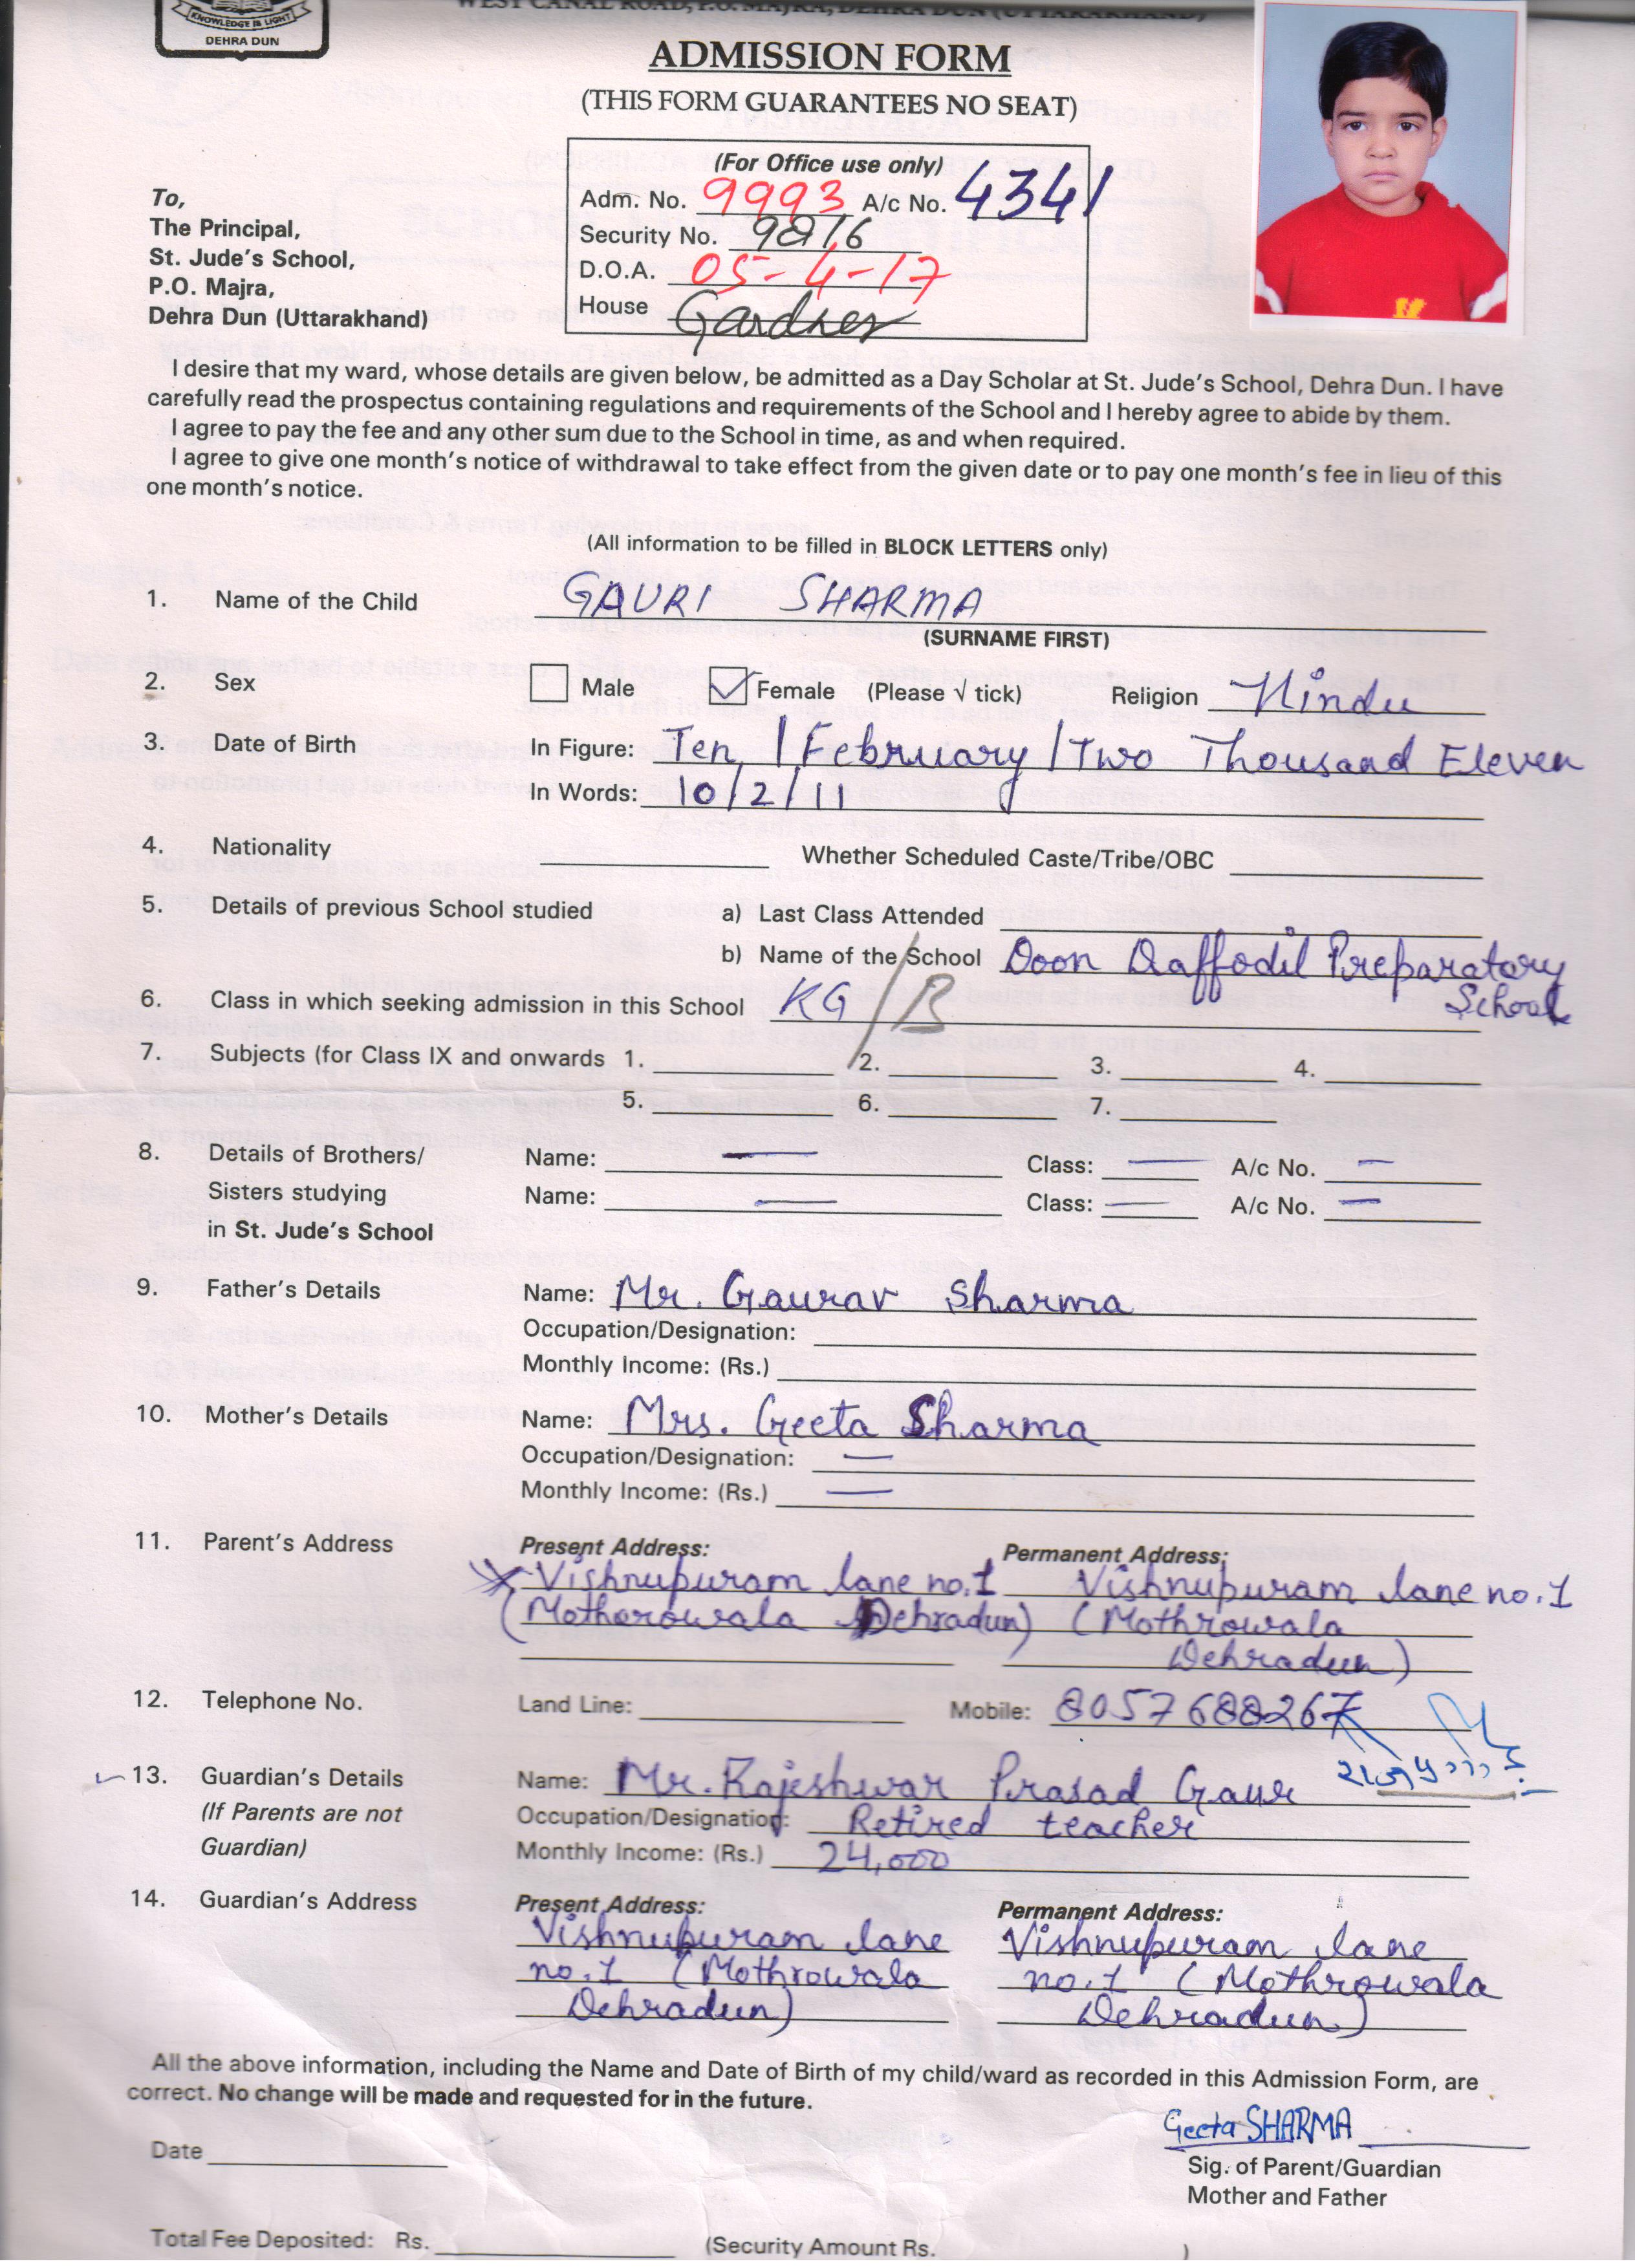 KNOWLEDGE IS LIGHT
DEHRA DUN
WEST CANAL ROAD, P.O. MAJRA, DEHRA DUN (UTTARAKHAND)
ADMISSION FORM
(THIS FORM GUARANTEES NO SEAT)
(For Office use only)
Adm. No. 9993 A/c No. 4341
Security No. 9876
D.O.A. 05-4-17
House Gardner
To,
The Principal,
St. Jude's School,
P.O. Majra,
Dehra Dun (Uttarakhand)
I desire that my ward, whose details are given below, be admitted as a Day Scholar at St. Jude's School, Dehra Dun. I have
carefully read the prospectus containing regulations and requirements of the School and I hereby agree to abide by them.
I agree to pay the fee and any other sum due to the School in time, as and when required.
I agree to give one month's notice of withdrawal to take effect from the given date or to pay one month's fee in lieu of this
one month's notice.
(All information to be filled in BLOCK LETTERS only)
1. Name of the Child GAURI SHARMA
(SURNAME FIRST)
2. Sex Male Female (Please √ tick) Religion Hindu
3. Date of Birth In Figure: Ten / February / Two Thousand Eleven
In Words: 10/2/11
4. Nationality Whether Scheduled Caste/Tribe/OBC
5. Details of previous School studied a) Last Class Attended
b) Name of the School Doon Daffodil Preparatory
School
6. Class in which seeking admission in this School KG/B
7. Subjects (for Class IX and onwards 1. 2. 3. 4.
5. 6. 7.
8. Details of Brothers/ Name: — Class: — A/c No. —
Sisters studying Name: — Class: — A/c No. —
in St. Jude's School
9. Father's Details Name: Mr. Gaurav Sharma
Occupation/Designation:
Monthly Income: (Rs.)
10. Mother's Details Name: Mrs. Geeta Sharma
Occupation/Designation: —
Monthly Income: (Rs.) —
11. Parent's Address Present Address: Permanent Address:
Vishnupuram lane no.1 Vishnupuram lane no.1
(Motherowala Dehradun) (Mothrowala
Dehradun)
12. Telephone No. Land Line: Mobile: 8057688267
13. Guardian's Details Name: Mr. Rajeshwar Prasad Gaur
(If Parents are not Occupation/Designation: Retired teacher
Guardian) Monthly Income: (Rs.) 24,000
14. Guardian's Address Present Address: Permanent Address:
Vishnupuram lane Vishnupuram lane
no.1 (Mothrowala no.1 (Mothrowala
Dehradun) Dehradun)
All the above information, including the Name and Date of Birth of my child/ward as recorded in this Admission Form, are
correct. No change will be made and requested for in the future.
Geeta SHARMA
Date
Sig. of Parent/Guardian
Mother and Father
Total Fee Deposited: Rs. (Security Amount Rs. )